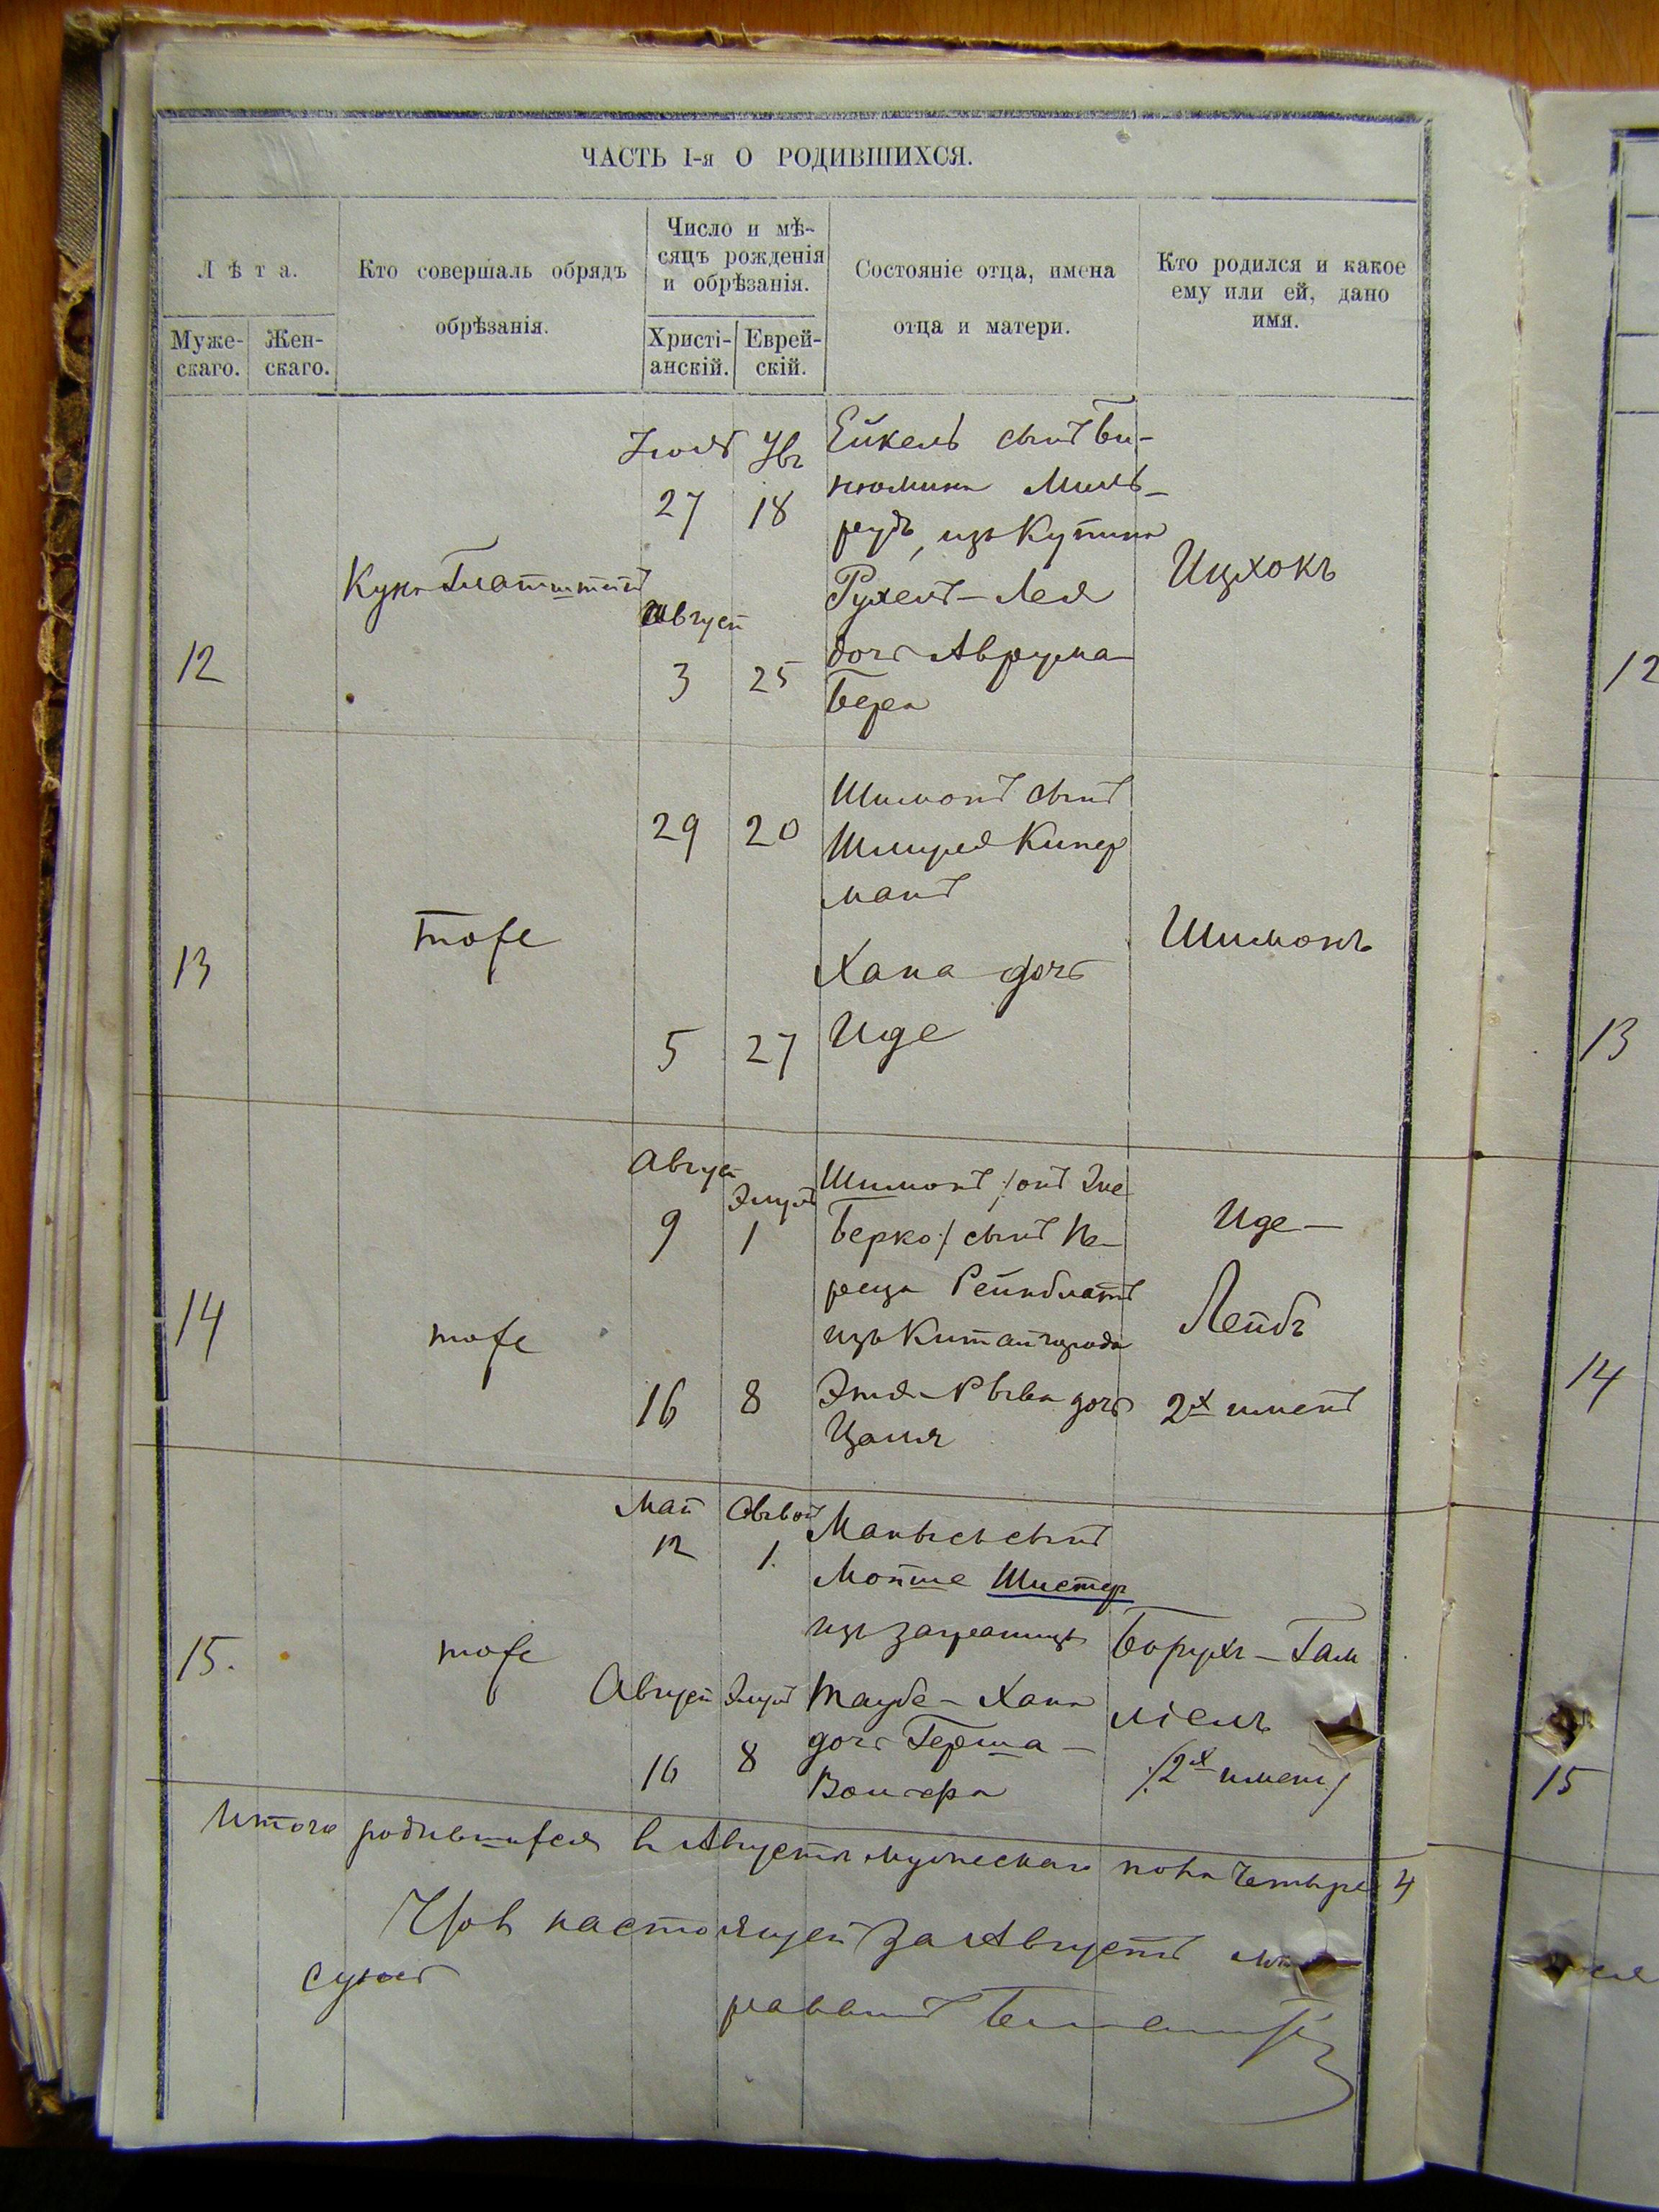 ЧАСТЬ I-я О РОДИВШИХСЯ.
Лѣта.
Муже-
скаго.
Жен-
скаго.
Кто совершалъ обрядъ
обрѣзанія.
Число и мѣ-
сяцъ рожденія
и обрѣзанія.
Христі-
анскій.
Еврей-
скій.
Состояніе отца, имена
отца и матери.
Кто родился и какое
ему или ей, дано
имя.
12
Августъ
27
3
18
25
Ейкель сынъ Би-
нюмина Миль-
изъ Купина
Рухель-Лея
дочь Аврума
Бера
Ицхокъ
12
13
тоже
29
5
20
27
Шимонъ сынъ
Шмуля Кипер
манъ
Хана дочь
Иде
Шимонъ
13
14
тоже
Август
9
16
Элулъ
1
8
Шимонъ /: онъ же
Берко :/ сынъ Пе-
реца Рейнблатъ
изъ Китайгорода
Этя-Рывка дочь
Цаля
Иде-
Лейбъ
2х именъ
14
15.
тоже
Май
12
Август
16
1.
Элулъ
8
Манысь сынъ
Мойше Шистер
изъ заграницы
Таубе-Хана
дочь Герша-
Борухъ-Гам
ліелъ
/:2х имен:/
15
Итого родившихся въ Августѣ мужескаго пола четыре 4
настоящей за Августъ
раввинъ